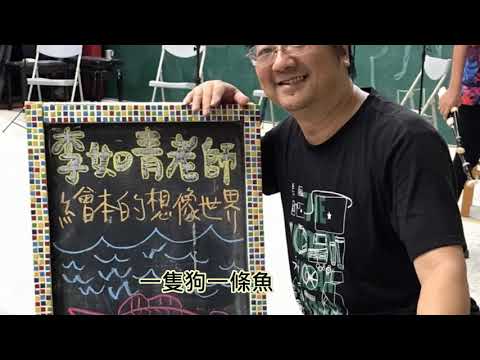 李如青老師
繪本的想像世界
一隻狗一條魚